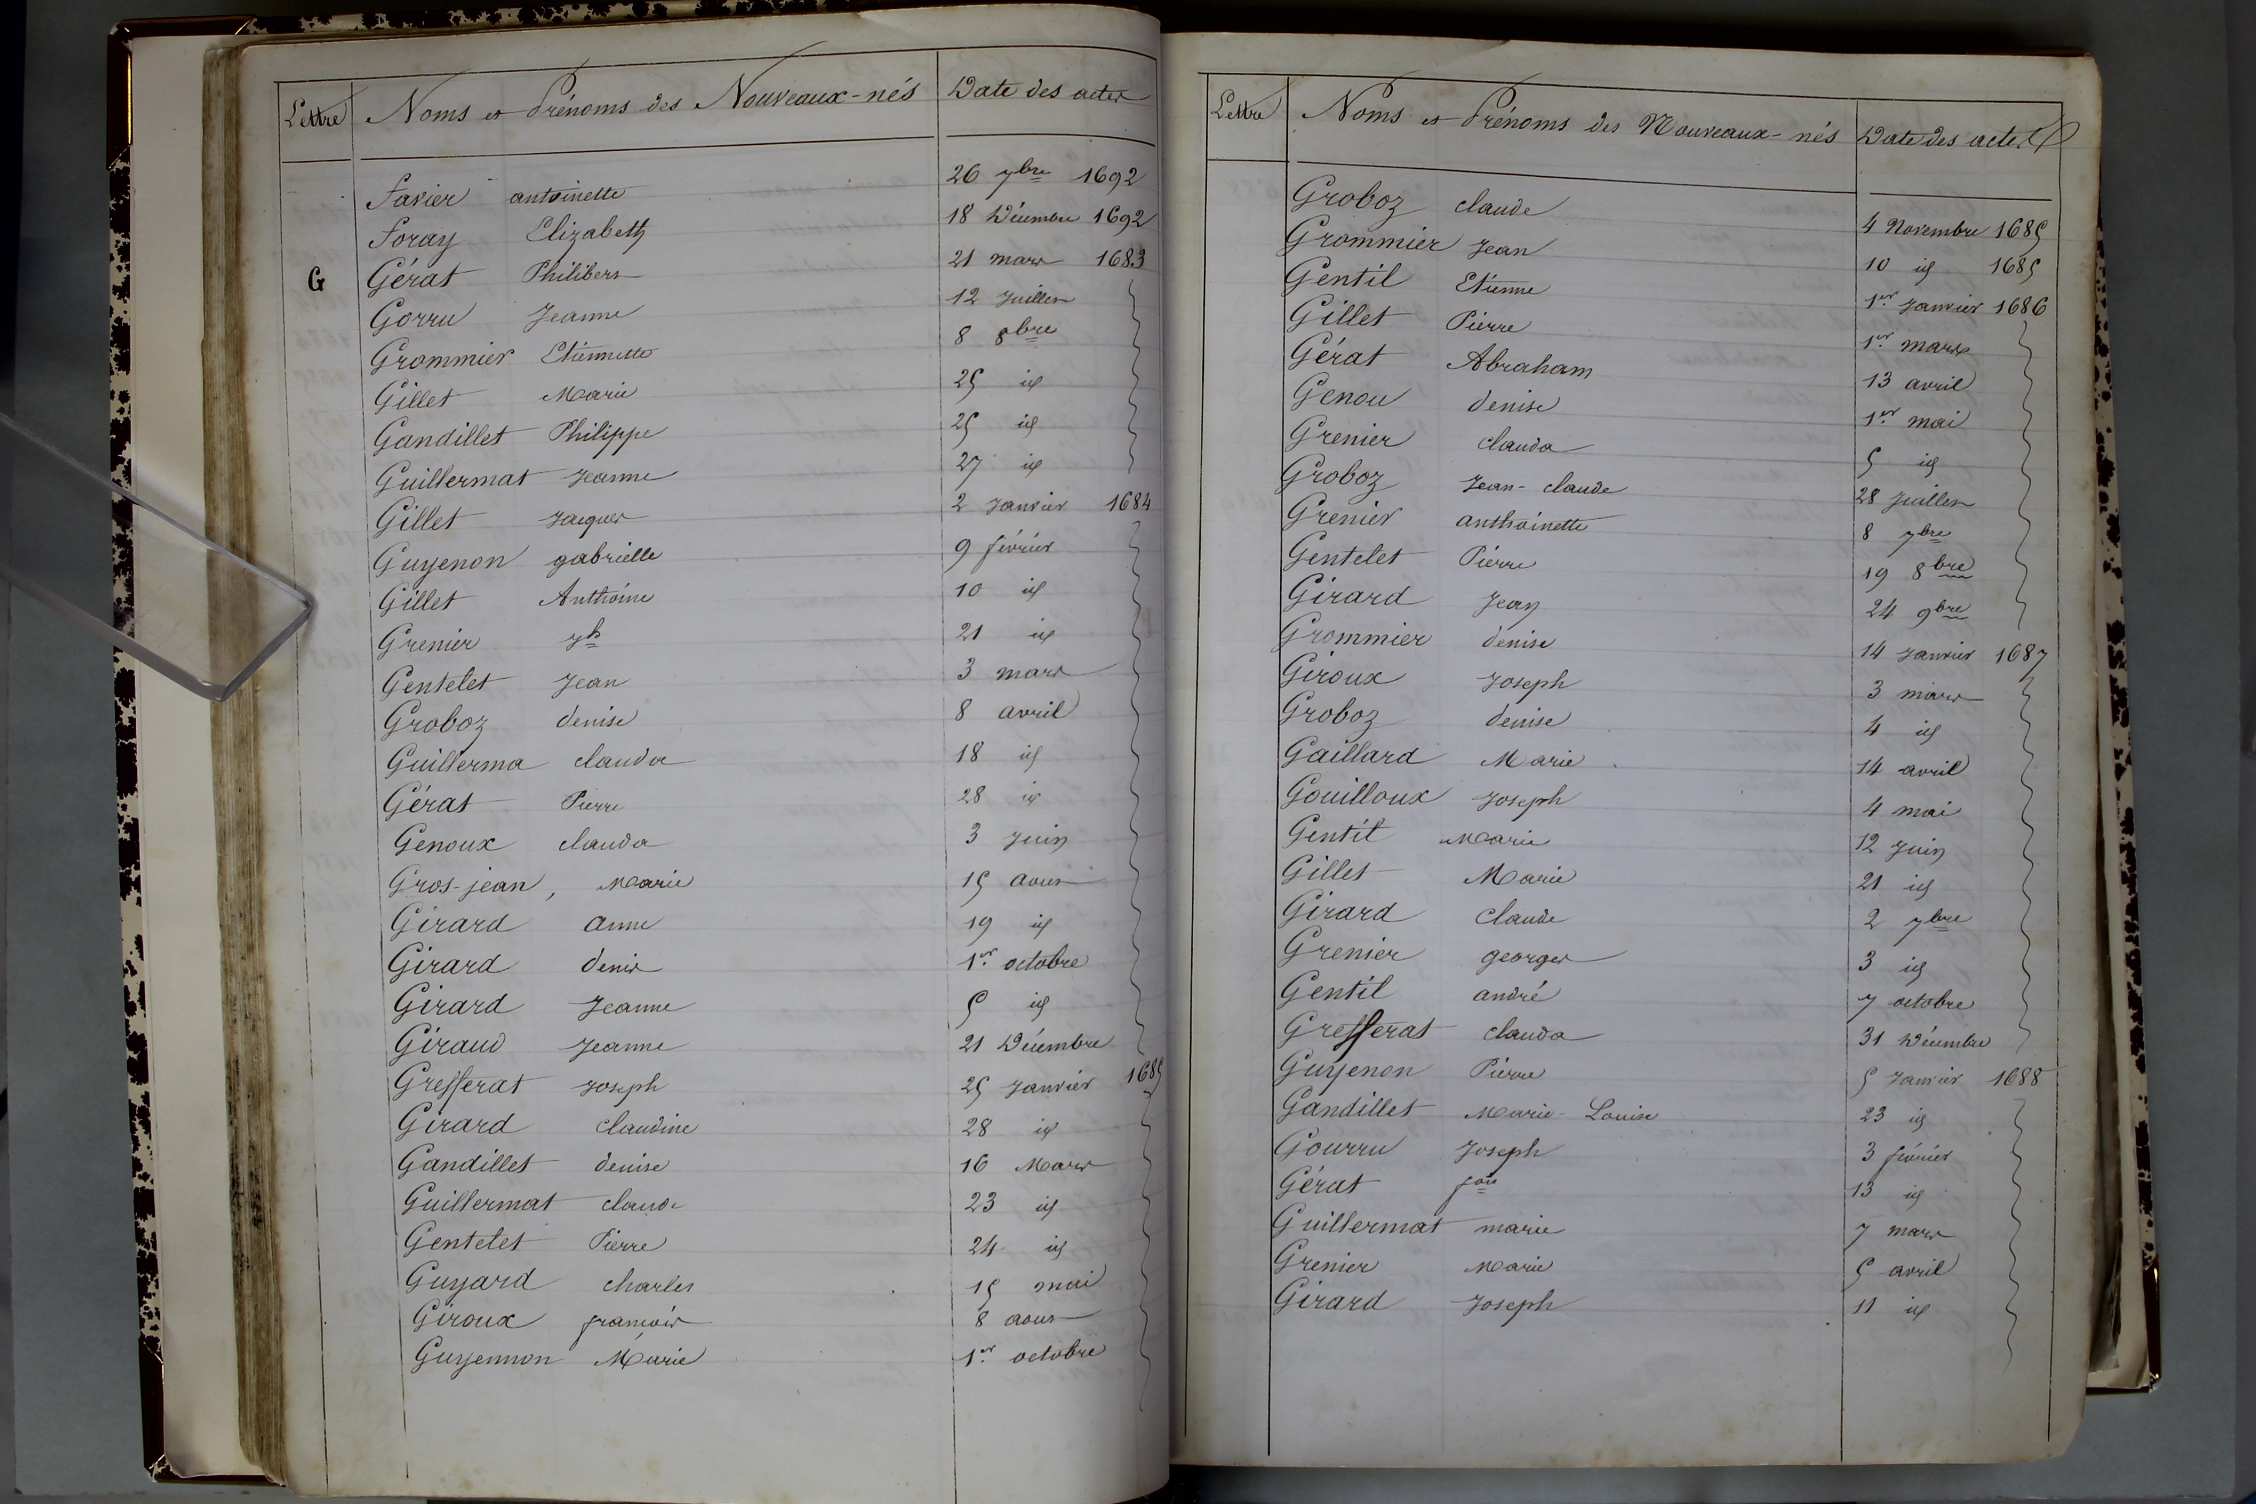 Lettre Noms et Prénoms des Nouveaux-nés Date des actes
Favier antoinette 26 7bre 1692
Foray Elizabeth 18 Décembre 1692
G Gérat Philibert 21 mars 1683
Gorru Jeanne 12 Juillet
Grommier Etiennette 8 8bre
Gillet Marie 25 id
Gandillet Philippe 25 id
Guillermat Jeanne 27 id
Gillet Jacques 2 Janvier 1684
Guyenon gabrielle 9 février
Gillet Anthoine 10 id
Grenier Jh 21 id
Gentelet Jean 3 mars
Groboz denise 8 avril
Guillerma clauda 18 id
Gérat Pierre 28 id
Genoux clauda 3 Juin
Gros-jean, Marie 15 aout
Girard anne 19 id
Girard denis 1er octobre
Girard Jeanne 5 id
Giraud Jeanne 21 Décembre
Grefferat Joseph 25 Janvier 1685
Girard claudine 28 id
Gandillet denise 16 Mars
Guillermat claude 23 id
Gentelet Pierre 24 id
Guyard charles 15 mai
Giroux francois 8 aout
Guyennon Marie 1er octobre
Lettre Noms et Prénoms des Nouveaux-nés Date des actes
Groboz claude 4 Novembre 1685
Grommier Jean 10 id 1685
Gentil Etienne 1er Janvier 1686
Gillet Pierre 1er mars
Gérat Abraham 13 avril
Genou denise 1er mai
Grenier clauda 5 id
Groboz Jean-claude 28 Juillet
Grenier anthoinette 8 7bre
Gentelet Pierre 19 8bre
Girard Jean 24 9bre
Grommier denise 14 Janvier 1687
Giroux Joseph 3 mars
Groboz denise 4 id
Gaillard Marie 14 avril
Gouilloux Joseph 4 mai
Gentil Marie 12 Juin
Gillet Marie 21 id
Girard Claude 2 7bre
Grenier georges 3 id
Gentil andré 7 octobre
Grefferat clauda 31 Décembre
Guyenon Pierre 5 Janvier 1688
Gandillet Marie-Louise 23 id
Gourru Joseph 3 février
Gérat fois 13 id
Guillermat marie 7 mars
Grenier Marie 5 avril
Girard Joseph 11 id